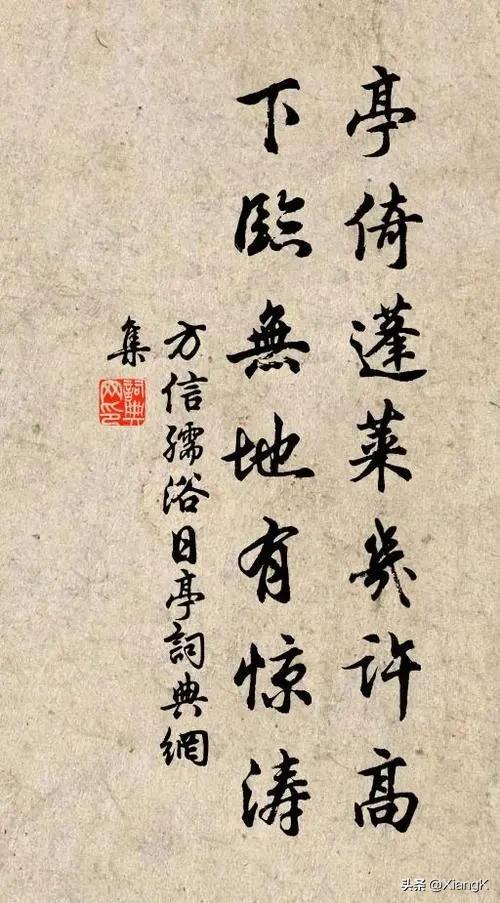 亭倚蓬莱幾许高
下臨無地有惊涛
方信孺浴日亭詞典網
集
詞典网印
头条 @XiangK